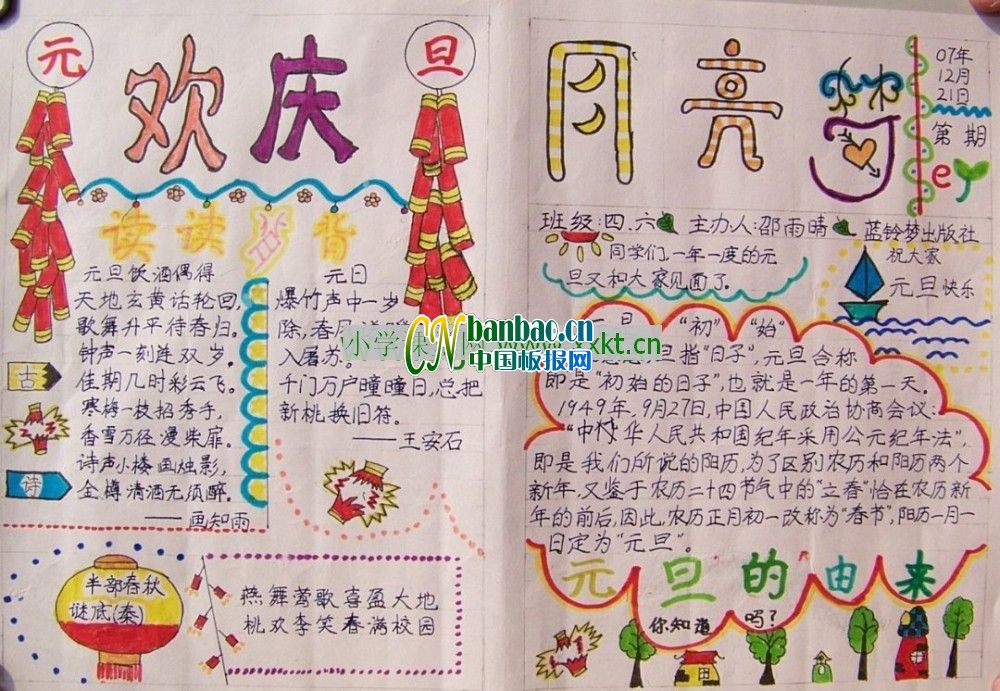 元
旦
欢庆
读读背背
元旦饮酒偶得
天地玄黄话轮回,
歌舞升平待春归。
钟声一刻连双岁,
佳期几时彩云飞。
寒梅一枝招秀手,
香雪万径漫柴扉。
诗声小楼画烛影,
金樽清酒无须醉。
——画知雨
古
诗
元日
爆竹声中一岁
除,春风
入屠苏。
千门万户曈曈日,总把
新桃换旧符。
——王安石
半部春秋
谜底(秦)
燕舞莺歌喜盈大地
桃欢李笑春满校园
月亮
07年
12月
21日
第 期
ey
班级:四.六 主办人:邵雨晴 蓝铃梦出版社
同学们,一年一度的元
旦又和大家见面了。
祝大家
元旦快乐
“初” “始”
旦指“日子”,元旦合称
即是“初始的日子”,也就是一年的第一天。
1949年,9月27日,中国人民政治协商会议:
“中华人民共和国纪年采用公元纪年法”,
即是我们所说的阳历,为了区别农历和阳历两个
新年,又鉴于农历二十四节气中的“立春”恰在农历新
年的前后,因此,农历正月初一改称为“春节”,阳历一月一
日定为“元旦”。
元旦的由来
你知道 吗?
小学课 www.xxkt.cn
CN banbao.cn
中国板报网